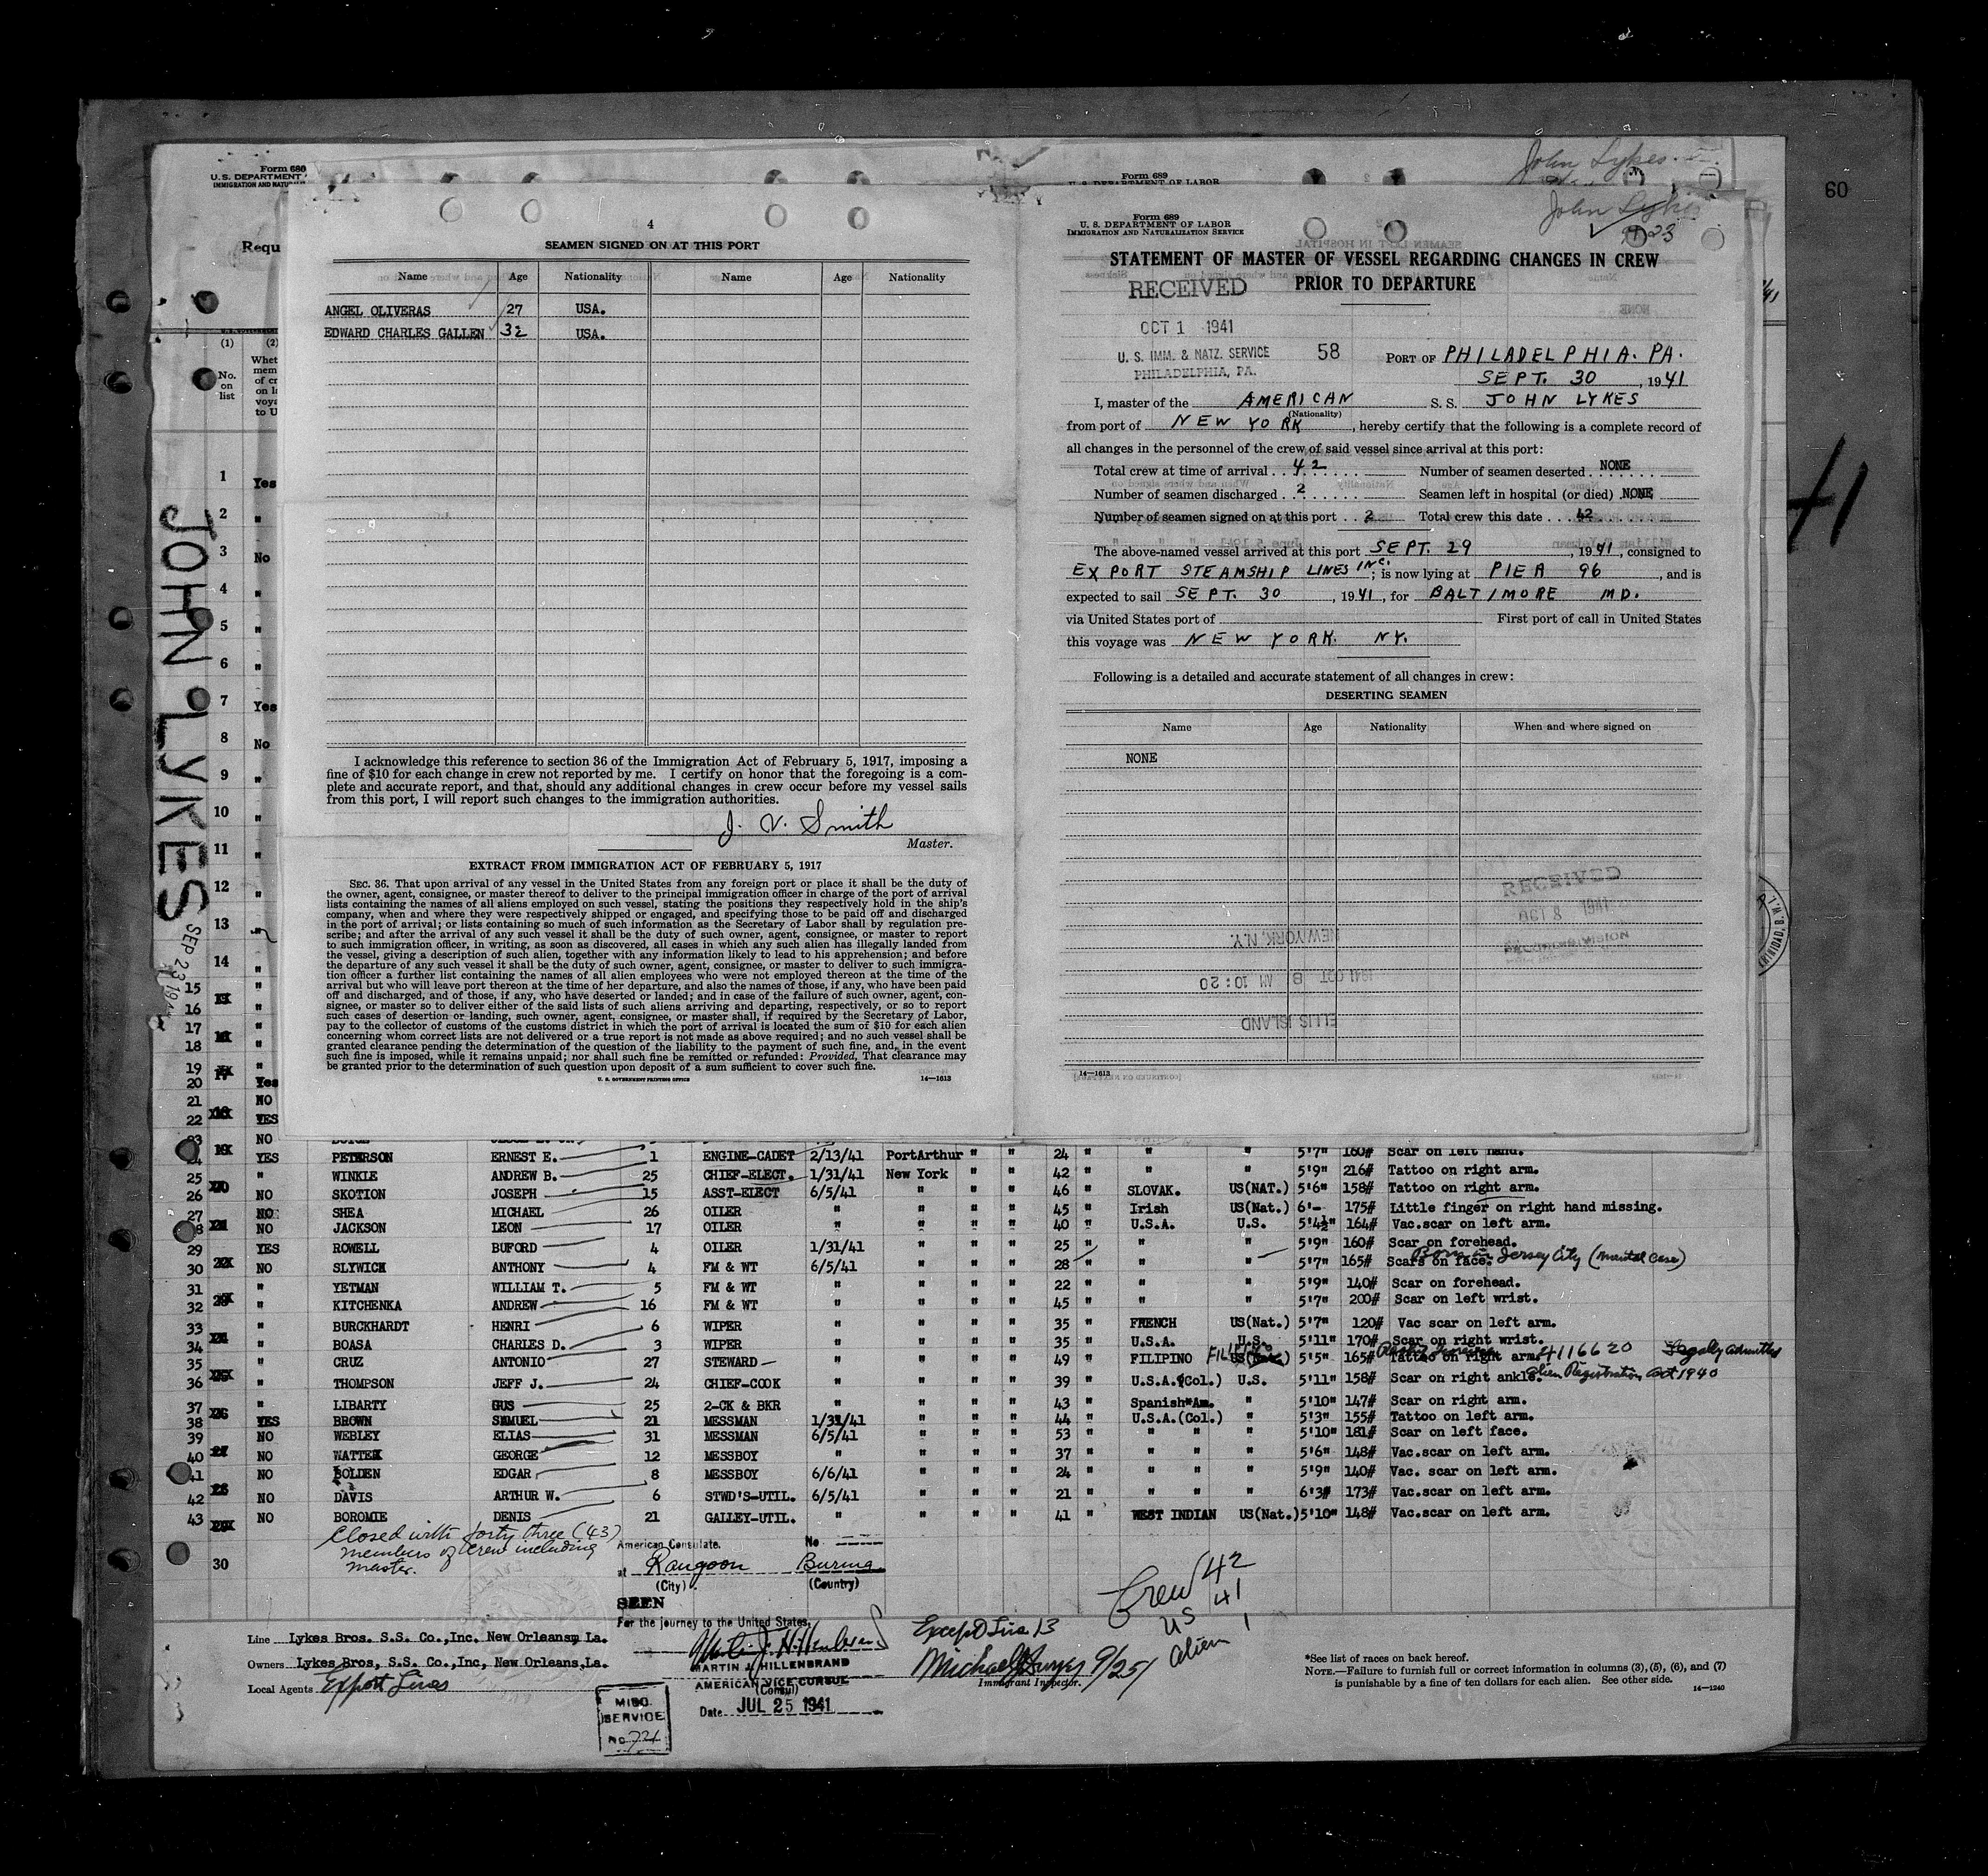 60
John Lykes
Form 689
U. S. DEPARTMENT OF LABOR
Form 680
U.S. DEPARTMENT
IMMIGRATION AND
Requ
(1) (2)
No. on list
Whet
mem
of cr
on la
voya
to U
JOHN LYKES
SEP 23 194
1 Yes
2 "
3 No
4 "
5 "
6 "
7 Yes
8 No
9 "
10 "
11 "
12 "
13 "
14 "
15 "
16 "
17 "
18 "
19 "
20 Yes
21 NO
22 YES
4
SEAMEN SIGNED ON AT THIS PORT
Name Age Nationality Name Age Nationality
ANGEL OLIVERAS 27 USA.
EDWARD CHARLES GALLEN 32 USA.
I acknowledge this reference to section 36 of the Immigration Act of February 5, 1917, imposing a
fine of $10 for each change in crew not reported by me. I certify on honor that the foregoing is a com-
plete and accurate report, and that, should any additional changes in crew occur before my vessel sails
from this port, I will report such changes to the immigration authorities.
J. V. Smith
Master.
EXTRACT FROM IMMIGRATION ACT OF FEBRUARY 5, 1917
SEC. 36. That upon arrival of any vessel in the United States from any foreign port or place it shall be the duty of
the owner, agent, consignee, or master thereof to deliver to the principal immigration officer in charge of the port of arrival
lists containing the names of all aliens employed on such vessel, stating the positions they respectively hold in the ship's
company, when and where they were respectively shipped or engaged, and specifying those to be paid off and discharged
in the port of arrival; or lists containing so much of such information as the Secretary of Labor shall by regulation pre-
scribe; and after the arrival of any such vessel it shall be the duty of such owner, agent, consignee, or master to report
to such immigration officer, in writing, as soon as discovered, all cases in which any such alien has illegally landed from
the vessel, giving a description of such alien, together with any information likely to lead to his apprehension; and before
the departure of any such vessel it shall be the duty of such owner, agent, consignee, or master to deliver to such immigra-
tion officer a further list containing the names of all alien employees who were not employed thereon at the time of the
arrival but who will leave port thereon at the time of her departure, and also the names of those, if any, who have been paid
off and discharged, and of those, if any, who have deserted or landed; and in case of the failure of such owner, agent, con-
signee, or master so to deliver either of the said lists of such aliens arriving and departing, respectively, or so to report
such cases of desertion or landing, such owner, agent, consignee, or master shall, if required by the Secretary of Labor,
pay to the collector of customs of the customs district in which the port of arrival is located the sum of $10 for each alien
concerning whom correct lists are not delivered or a true report is not made as above required; and no such vessel shall be
granted clearance pending the determination of the question of the liability to the payment of such fine, and, in the event
such fine is imposed, while it remains unpaid; nor shall such fine be remitted or refunded: Provided, That clearance may
be granted prior to the determination of such question upon deposit of a sum sufficient to cover such fine.
U. S. GOVERNMENT PRINTING OFFICE 14—1613
Form 689
U. S. DEPARTMENT OF LABOR
IMMIGRATION AND NATURALIZATION SERVICE
John Lykes
9/23
STATEMENT OF MASTER OF VESSEL REGARDING CHANGES IN CREW
PRIOR TO DEPARTURE
RECEIVED
OCT 1 1941
U. S. IMM. & NATZ. SERVICE
PHILADELPHIA, PA.
58
PORT OF PHILADELPHIA. PA.
SEPT. 30, 1941
I, master of the AMERICAN S. S. JOHN LYKES
(Nationality)
from port of NEW YORK, hereby certify that the following is a complete record of
all changes in the personnel of the crew of said vessel since arrival at this port:
Total crew at time of arrival 42 Number of seamen deserted NONE
Number of seamen discharged 2 Seamen left in hospital (or died) NONE
Number of seamen signed on at this port 2 Total crew this date 42
The above-named vessel arrived at this port SEPT. 29, 1941, consigned to
EXPORT STEAMSHIP LINES INC.; is now lying at PIER 96, and is
expected to sail SEPT. 30, 1941, for BALTIMORE MD.
via United States port of First port of call in United States
this voyage was NEW YORK. NY.
Following is a detailed and accurate statement of all changes in crew:
DESERTING SEAMEN
Name Age Nationality When and where signed on
NONE
RECEIVED
OCT 8 1941
NEW YORK, N.Y.
1941 OCT 8 AM 10:20
ELLIS ISLAND
14—1613
TRINIDAD, B.W.I.
41
YES PETERSON ERNEST E. 1 ENGINE-CADET 2/13/41 PortArthur " " 24 " " 5'7" 160# Scar on left hand.
25 " WINKLE ANDREW B. 25 CHIEF-ELECT. 1/31/41 New York " " 42 " " 5'9" 216# Tattoo on right arm.
26 NO SKOTION JOSEPH 15 ASST-ELECT 6/5/41 " " " 46 " SLOVAK. US(NAT.) 5'6" 158# Tattoo on right arm.
27 NO SHEA MICHAEL 26 OILER " " " " 45 " Irish US(Nat.) 6'- 175# Little finger on right hand missing.
28 NO JACKSON LEON 17 OILER " " " " 40 " U.S.A. U.S. 5'4½" 164# Vac.scar on left arm.
29 YES ROWELL BUFORD 4 OILER 1/31/41 " " " 25 " " " 5'9" 160# Scar on forehead.
30 NO SLYWICH ANTHONY 4 FM & WT 6/5/41 " " " 28 " " 5'7" 165# Scars on face. Born in Jersey City (Mental Case)
31 " YETMAN WILLIAM T. 5 FM & WT " " " " 22 " " " 5'9" 140# Scar on forehead.
32 " KITCHENKA ANDREW 16 FM & WT " " " " 45 " " " 5'7" 200# Scar on left wrist.
33 " BURCKHARDT HENRI 6 WIPER " " " " 35 " FRENCH US(Nat.) 5'7" 120# Vac scar on left arm.
34 " BOASA CHARLES D. 3 WIPER " " " " 35 " U.S.A. U.S. 5'11" 170# Scar on right wrist.
35 " CRUZ ANTONIO 27 STEWARD " " " " 49 " FILIPINO FILIPINO 5'5" 165# Tattoo on right arm. 4116620 Legally admitted
36 " THOMPSON JEFF J. 24 CHIEF-COOK " " " " 39 " U.S.A.(Col.) U.S. 5'11" 158# Scar on right ankle. Alien Registration Act 1940
37 " LIBARTY GUS 25 2-CK & BKR " " " " 43 " Spanish*Am. " 5'10" 147# Scar on right arm.
38 YES BROWN SAMUEL 21 MESSMAN 1/31/41 " " " 44 " U.S.A.(Col.) " 5'3" 155# Tattoo on left arm.
39 NO WEBLEY ELIAS 31 MESSMAN 6/5/41 " " " 53 " " " " 5'10" 181# Scar on left face.
40 NO WATTEX GEORGE 12 MESSBOY " " " " 37 " " " " 5'6" 148# Vac.scar on left arm.
41 NO BOLDEN EDGAR 8 MESSBOY 6/6/41 " " " 24 " " " " 5'9" 140# Vac. scar on left arm.
42 NO DAVIS ARTHUR W. 6 STWD'S-UTIL. 6/5/41 " " " 21 " " " " 6'3# 173# Vac.scar on left arm.
43 NO BOROMIE DENIS 21 GALLEY-UTIL. " " " " 41 " WEST INDIAN US(Nat.) 5'10" 148# Vac.scar on left arm.
Closed with forty three (43)
members of crew including
master.
30
American Consulate. No.
at Rangoon Burma
(City) (Country)
SEEN
For the journey to the United States.
MARTIN J. HILLENBRAND
AMERICAN VICE CONSUL
(Consul)
Date JUL 25 1941
MISC.
SERVICE
NO 721
Line Lykes Bros. S.S. Co.,Inc. New Orleans, La.
Owners Lykes Bros, S.S. Co.,Inc, New Orleans,La.
Local Agents Export Lines
Except Line 13
9/25/
Immigrant Inspector.
Crew 42
US 41
Alien 1
*See list of races on back hereof.
NOTE.—Failure to furnish full or correct information in columns (3), (5), (6), and (7)
is punishable by a fine of ten dollars for each alien. See other side.
14—1240